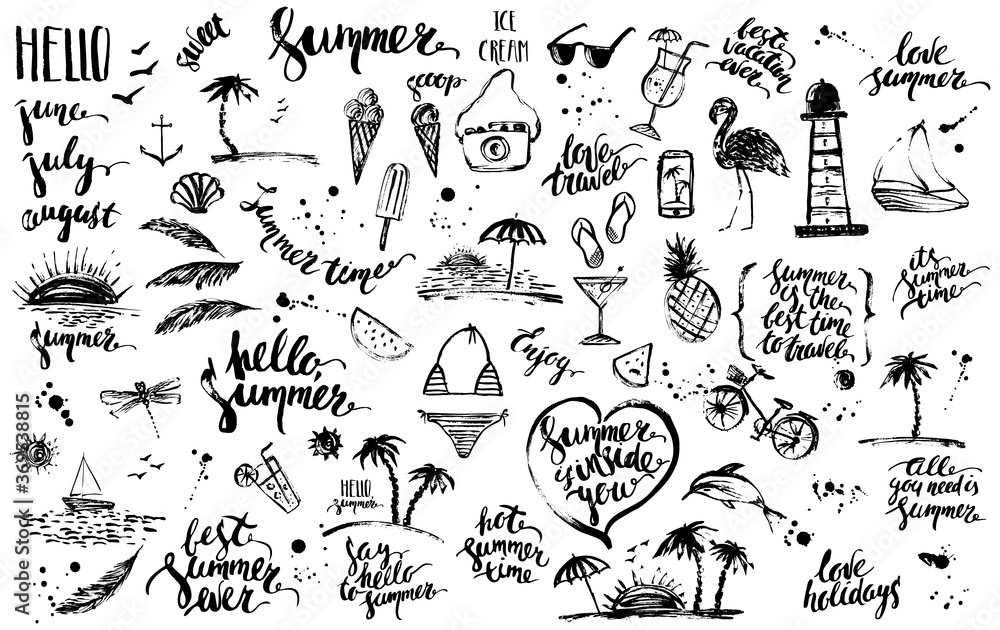 HELLO
sweet
Summer
ICE
CREAM
best
vacation
ever
love
summer
june
july
august
scoop
love
travel
Summer time
summer
hello,
summer
Enjoy
summer
is the
best time
to travel
it's
summer
time
Summer
is inside
you
HELLO,
summer
best
summer
ever
say
hello
to summer
hot
summer
time
all
you need is
summer
love
holidays
Adobe Stock
#369438815